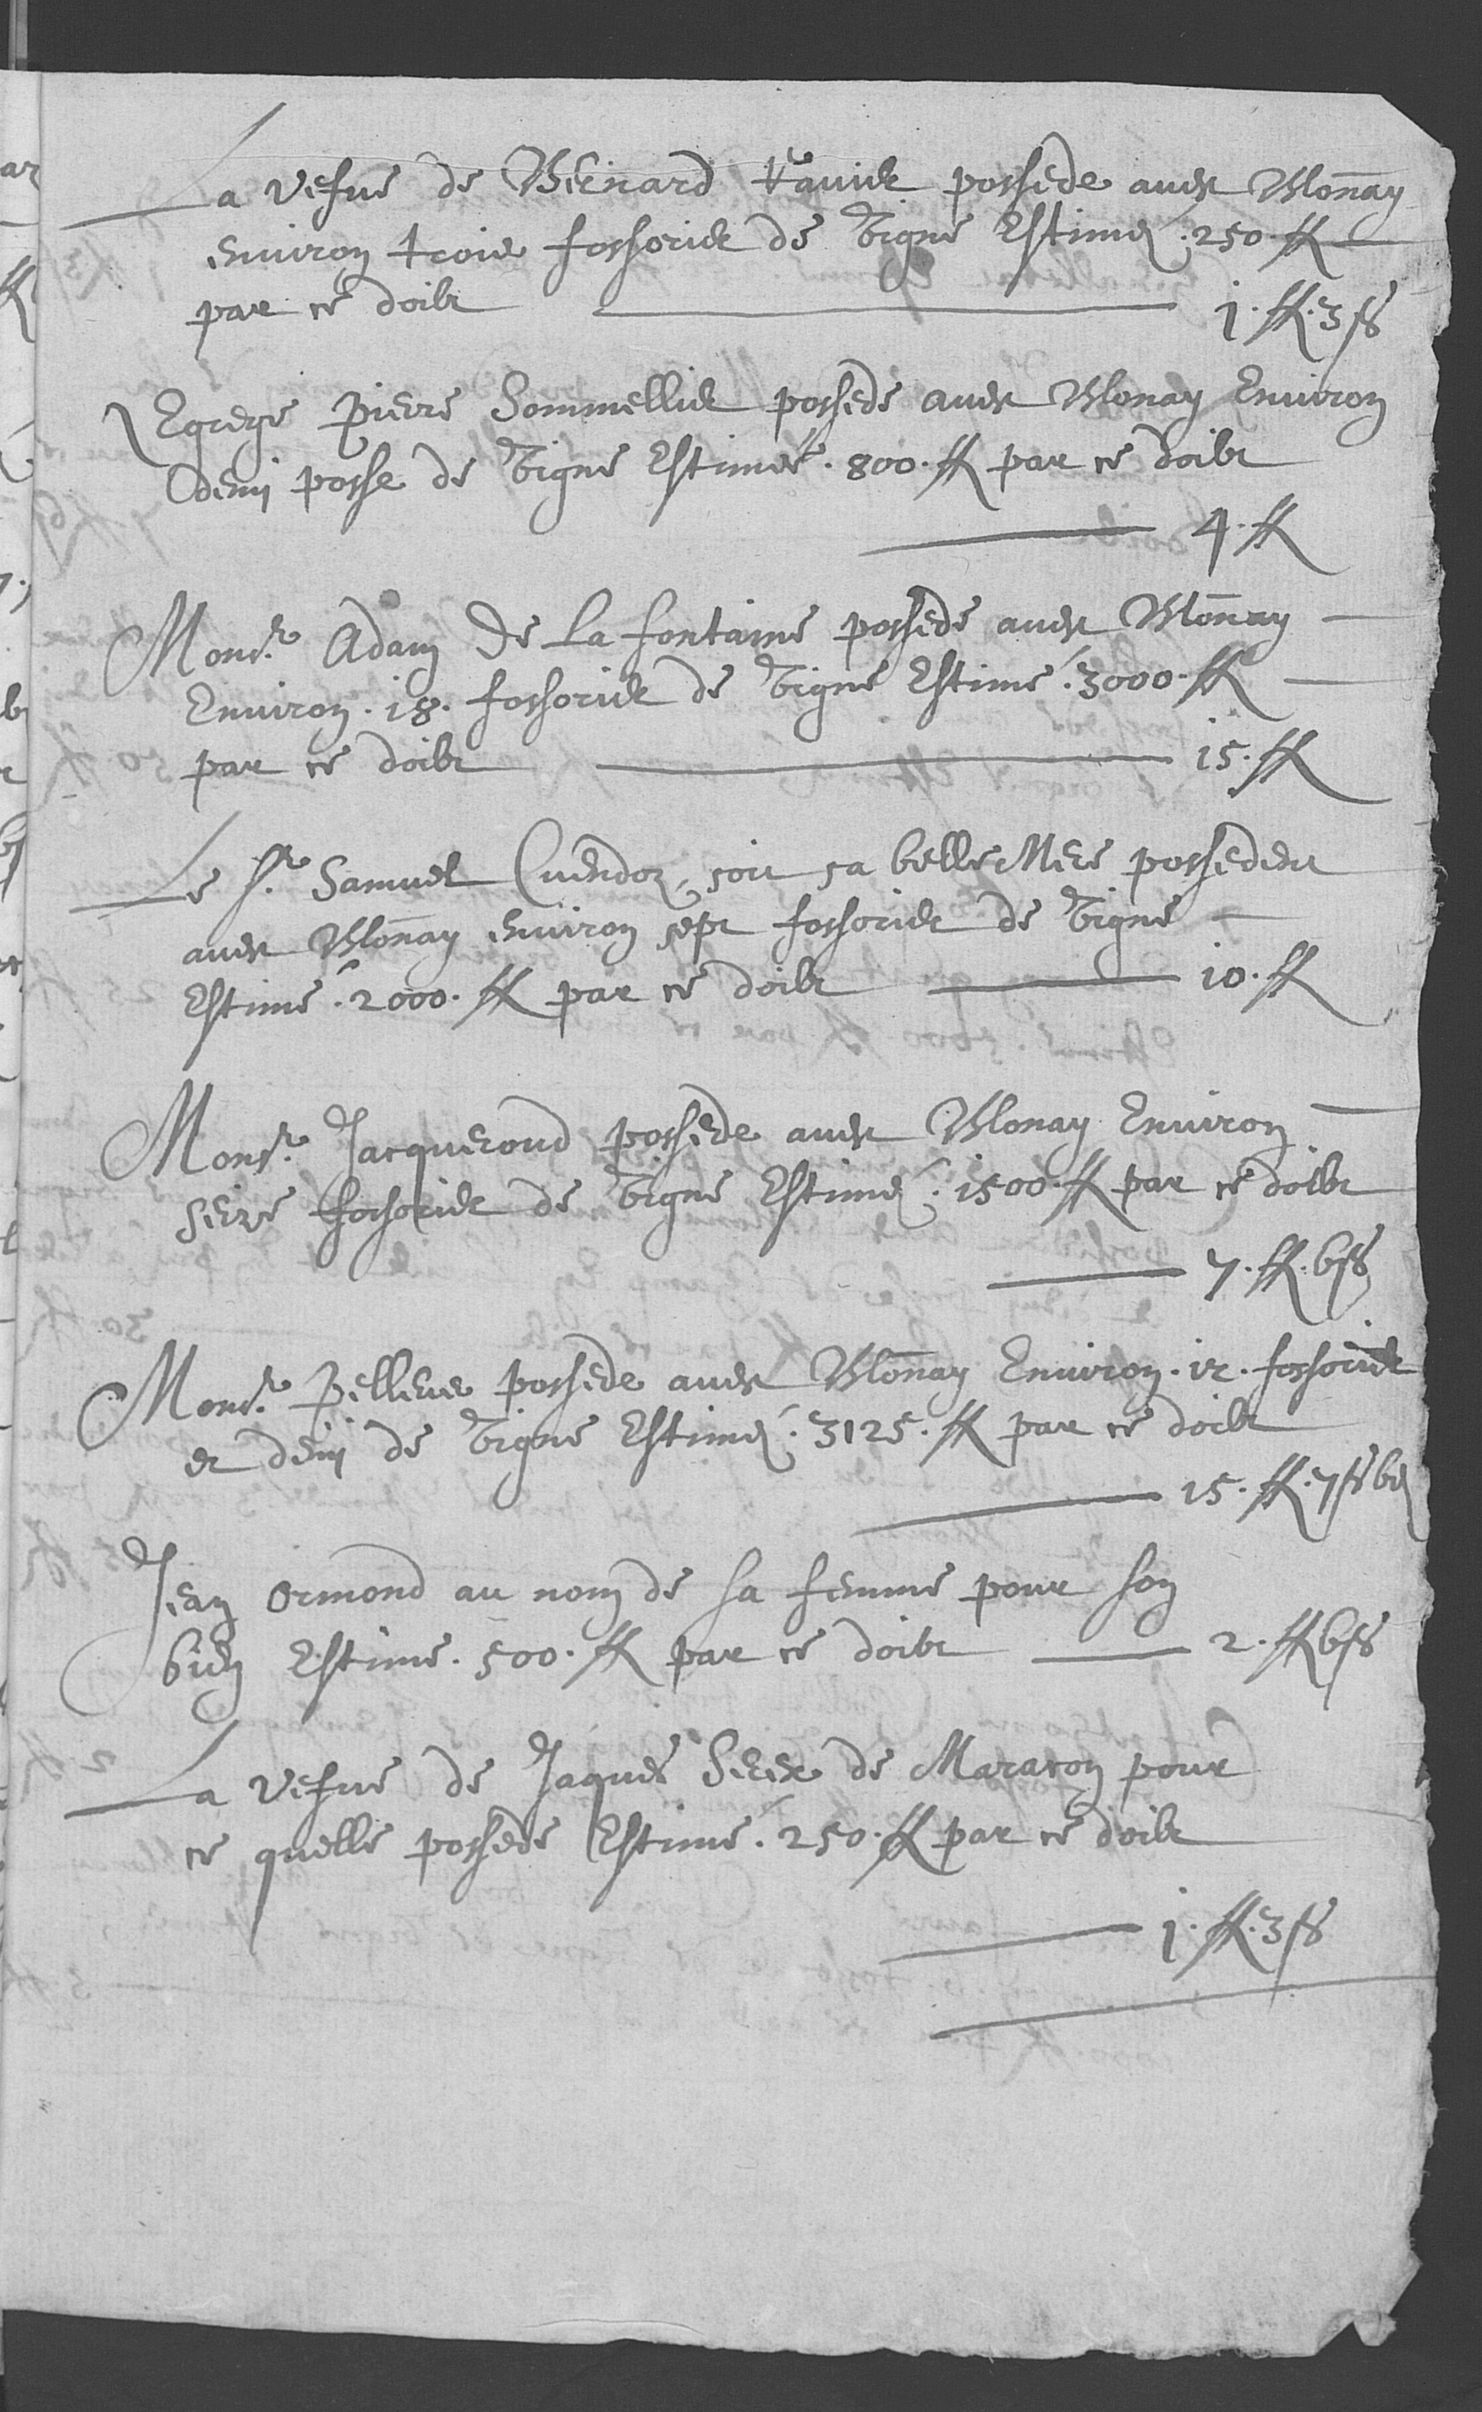 La vefue de Bernard Kauier possede auer Blonnay
enuiron trois fossorier de Vigne Estimé. 250. ff
par ce doibt j. ff. 3 ss
Egrege Pierre Sommellier possede auer Blonay Enuiron
demi posse de Vigne Estimée. 800. ff par ce doibt
4. ff
Monsr. Adam De La fontaine possede auer Blonnay
Enuiron. 18. fossorier de Vigne Estimé. 3000. ff
par ce doibt 15. ff
Le Sr. Samuel Cuendoz, soit sa belle Mere possedent
auer Blonnay enuiron sept fossorier de Vigne
Estimé. 2000. ff par ce doibt 10. ff
Monsr. Jacqueroud possede auer Blonay Enuiron
seize fossorier de Vigne Estimé. 1500. ff par ce doibt
7. ff. 6 ss
Monsr. Pelleue possede auer Blonnay Enuiron. 12. fossorier
et demi de Vigne Estimé. 3125. ff par ce doibt
15. ff. 7 ss 6 d
Jean Ormond au nom de sa femme pour son
bien Estime. 500. ff par ce doibt 2. ff 6 ss
La vefue de Jaques Serex de Maracon pour
ce quelle possede Estimé. 250. ff par ce doibt
j. ff. 3 ss